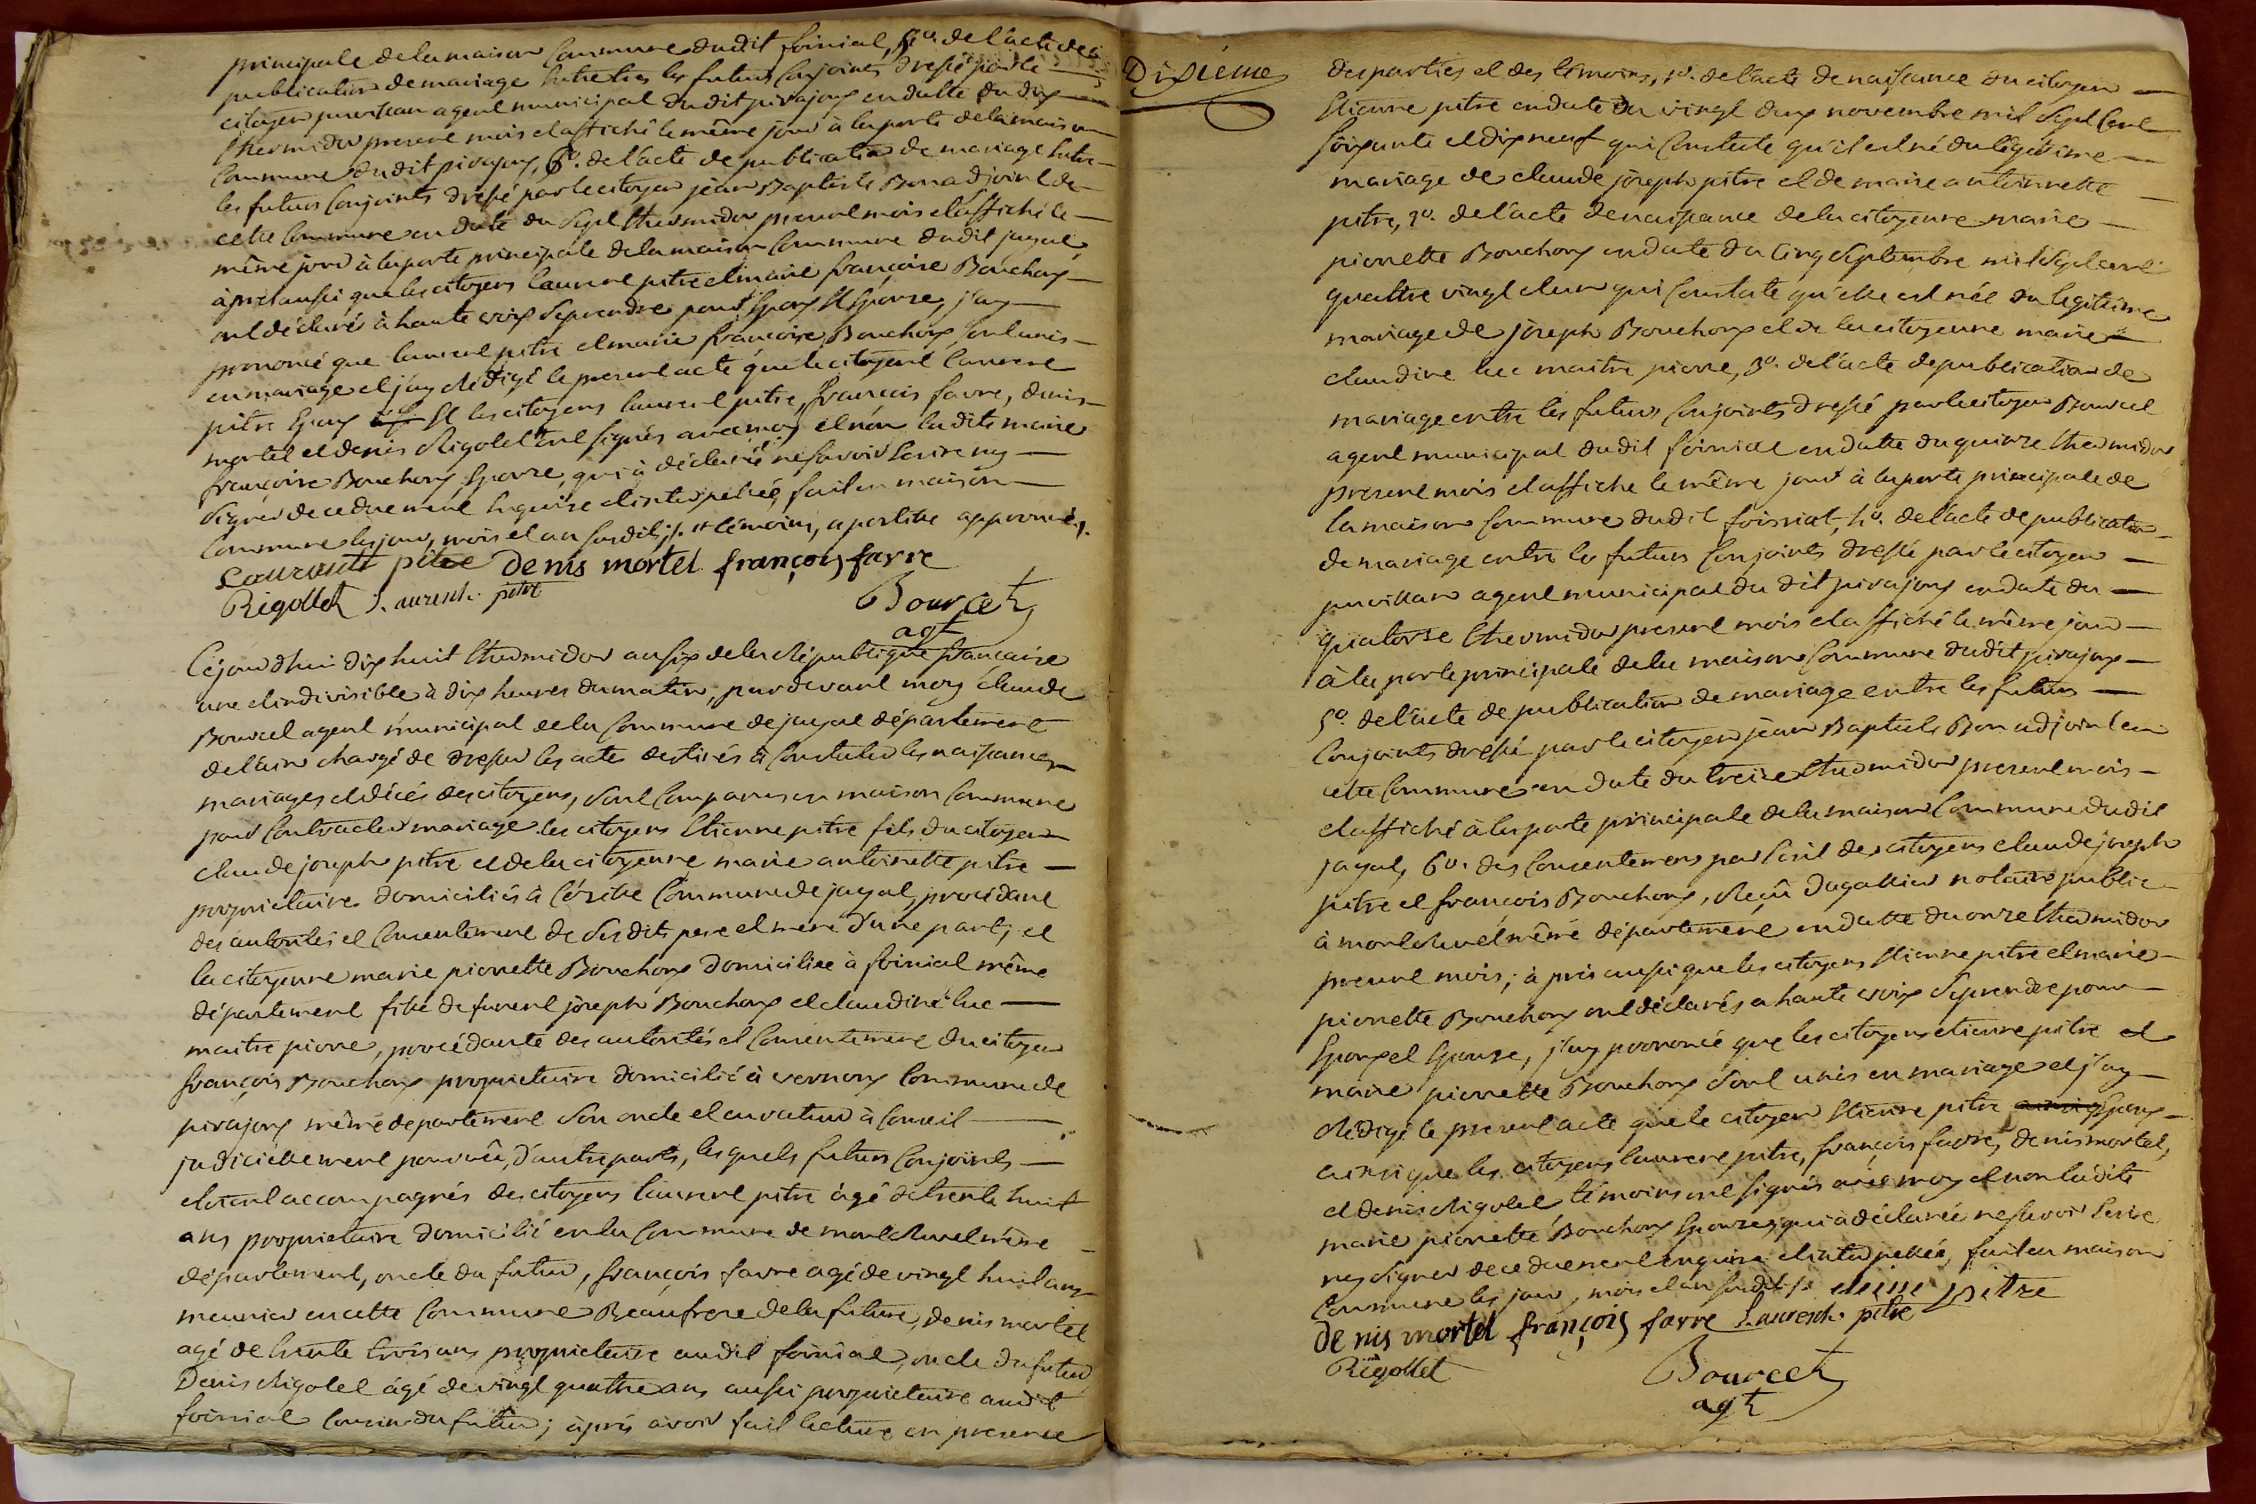 principale de la maison Commune dudit foiriat, 5º. de l'acte de
publication de mariage Entre les futurs Conjoints dressé par le
citoyen puvillan agent municipal dudit pirajoux en datte du dix
thermidor present mois et affiché le même jour à la porte de la maison
Commune dudit pirajoux, 6º. de l'acte de publication de mariage Entre
les futurs Conjoints dressé par le citoyen jean Baptiste Bon adjoint de
cette Commune en date du Sept thermidor present mois et affiché le
même jour à la porte principale de la maison Commune dudit jayat,
àprès aussi que les citoyens laurent pitre et marie françoise Bouchoux
ont déclarés à haute voix Se prendre pour Epoux Et Epouse, j'ay
prononcé que laurent pitre et marie françoise Bouchoux Sont unis
en mariage et j'ay Rédigé le present acte que le citoyent laurent
pitre Epoux Et les citoyens laurent pitre, françois favre, denis
mortel et denis Rigolet ont signés avec moy et non ladite marie
françoise Bouchoux Epouse, qui à déclarée ne Savoir Ecrire ny
Signer de ce duement Enquise et interpellée, fait en maison
Commune les jour, mois et an Susdits ./. témoins, apostille approuvé ./.
Laurent pitre Denis mortel françois farre
Rigollet Laurent pitre
Bourcet
agt
Cejourd'hui dix huit thermidor an six de la République française
une et indivisible à dix heures du matin, pardevant moy claude
Bourcet agent municipal de la Commune de jayat département
de l'ain chargé de dresser les actes destinés à Constater les naissances
mariages et décés des citoyens, sont Comparus en maison Commune
pour Contracter mariage les citoyens Etienne pitre fils du citoyen
claude joseph pitre et de la citoyenne marie antoinette pitre
proprietaires domiciliés à Cézille Commune de jayat, procédant
des autorités et Consentement de Sesdits pere et mere d'une part, et
la citoyenne marie pierrette Bouchoux domiciliée à foiriat même
département fille de furent joseph Bouchoux et claudine luc
maitre pierre, procédante des autorités et Consentement du citoyen
françois Bouchoux proprietaire domicilié à vernoux Commune de
pirajoux même departement Son oncle et curateur à Conseil
judiciellement pourvûe, d'autre part, lesquels futurs Conjoints
etoient accompagnés des citoyens laurent pitre âgé de trente huit
ans proprietaire domicilié en la Commune de montrevel même
département, oncle du futur, françois favre agé de vingt huit ans
meunier en cette Commune Beaufrere de la future, denis mortel
agé de trente trois ans proprietaire audit foiriat, oncle du futur
Denis Rigolet âgé de vingt quatre ans aussi proprietaire audit
foiriat Cousin du futur ; àprès avoir fait lecture en presence
Dixiéme
des parties et des témoins, 1º. de l'acte de naissance du citoyen
Etienne pitre en date du vingt deux novembre mil Sept Cent
Soixante et dix neuf qui Constate qu'il est né du légitime
mariage de claude joseph pitre et de marie antoinette
pitre, 2º. de l'acte de naissance de la citoyenne marie
pierrette Bouchoux en date du Cinq Septembre mil Sept cent
quattre vingt et un qui Constate qu'elle est née du legitime
mariage de joseph Bouchoux et de la citoyenne marie
claudine luc maitre pierre, 3º. de l'acte de publication de
mariage entre les futurs Conjoints dressé par le citoyen Bourcet
agent municipal dudit foiriat en datte du quinze thermidor
present mois et affiché le même jour à la porte principale de
la maison Commune dudit foiriat, 4º. de l'acte de publication
de mariage entre les futurs Conjoints dressé par le citoyen
puvillan agent municipal du dit pirajoux en date du
quatorze thermidor present mois et affiché le même jour
à la porte principale de la maison Commune dudit pirajoux
5º. de l'acte de publication de mariage entre les futurs
Conjoints dressé par le citoyen jean Baptiste Bon adjoint en
cette Commune en date du treize thermidor present mois
et affiché à la porte principale de la maison Commune dudit
jayat, 6º. des Consentemens par Ecrit des citoyens claude joseph
pitre et françois Bouchoux, Reçû dagallier notaire public
à montrevel même département en datte du onze thermidor
present mois ; à près aussi que les citoyens Etienne pitre et marie
pierrette Bouchoux ont déclarés a haute voix Se prendre pour
Epoux et Epouse, j'ay prononcé que les citoyens etienne pitre et
marie pierrette Bouchoux Sont unis en mariage et j'ay
Rédigé le present acte que le citoyen Etienne pitre Epoux
ainsi que les citoyens laurent pitre, françois favre, denis mortel,
et denis Rigolet témoins ont signés avec moy et non ladite
marie pierrette Bouchoux Epouse, qui à déclarée ne Savoir Ecrire
ny Signer de ce duement enquise et interpellée, fait en maison
Commune les jour, mois et an Susdits ./. etiene pitre
denis mortel françois farre Laurent pitre
Rigollet
Bourcet
agt